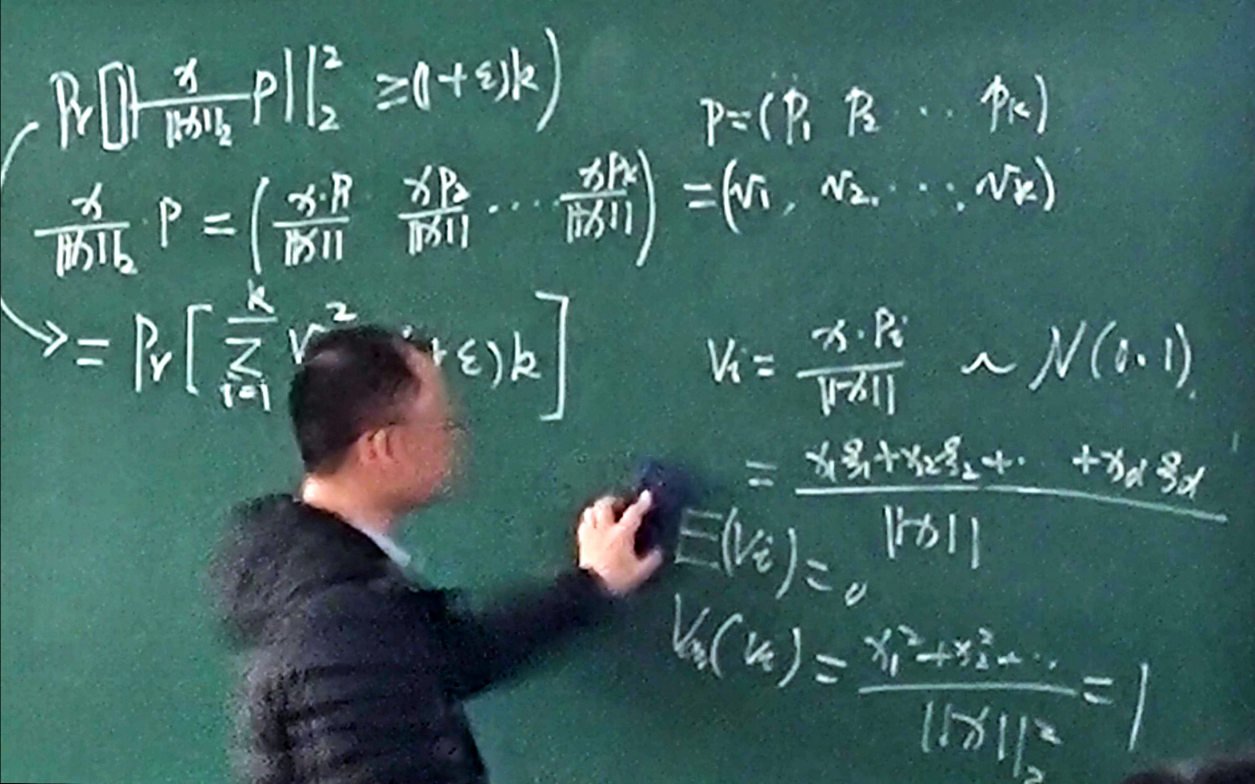 Pr[|| x/||x||₂ P||₂² ≥ (1+ε)k)
P=(P₁ P₂ ... Pₖ)
x/||x||₂ · P = (x·P₁/||x|| xP₂/||x|| .... xPₖ/||x||) = (v₁, v₂, ..., vₖ)
→ = Pr[∑ᵢ₌₁ᵏ V ² +ε)k]
Vᵢ = x·Pᵢ/||x|| ~ N(0.1)
= x₁g₁+x₂g₂+.. +x_d g_d / ||x||
E(Vᵢ)=0
Var(Vᵢ) = x₁²+x₂²+... / ||x||₂² = 1